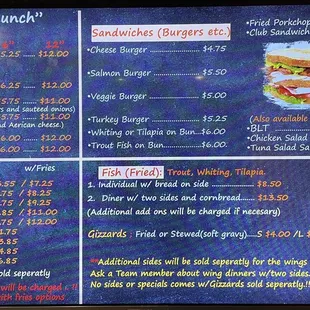 unch"
6"
12"
5.25 ..... $12.00
6.25 ...... $12.00
5.75 .... $11.00
s and sauteed onions)
5.75 ...... $11.00
nd Aerican cheese.)
6.00 ....... $12.00
6.00 ....... $12.00
Sandwiches (Burgers etc.)
•Cheese Burger ................ $4.75
•Salmon Burger ............... $5.50
•Veggie Burger ................ $5.00
•Turkey Burger ................ $5.25
•Whiting or Tilapia on Bun...$6.00
•Trout Fish on Bun............$6.00
•Fried Porkchop
•Club Sandwich
(Also available
•BLT
•Chicken Salad
•Tuna Salad Sa
w/Fries
5.55 / $7.25
.75 / $8.25
.75 / $9.25
8.85 / $11.00
.85 / $12.00
4.75
6.85
4.85
6.85
old seperatly
will be charged !!
with fries options
Fish (Fried): Trout, Whiting, Tilapia.
1. Individual w/ bread on side .............. $8.50
2. Diner w/ two sides and cornbread.......$13.50
(Additional add ons will be charged if necesary)
Gizzards : Fried or Stewed(soft gravy).....S $4.00 /L $
**Additional sides will be sold seperatly for the wings
Ask a Team member about wing dinners w/two sides.
No sides or specials comes w/Gizzards sold seperatly.!!